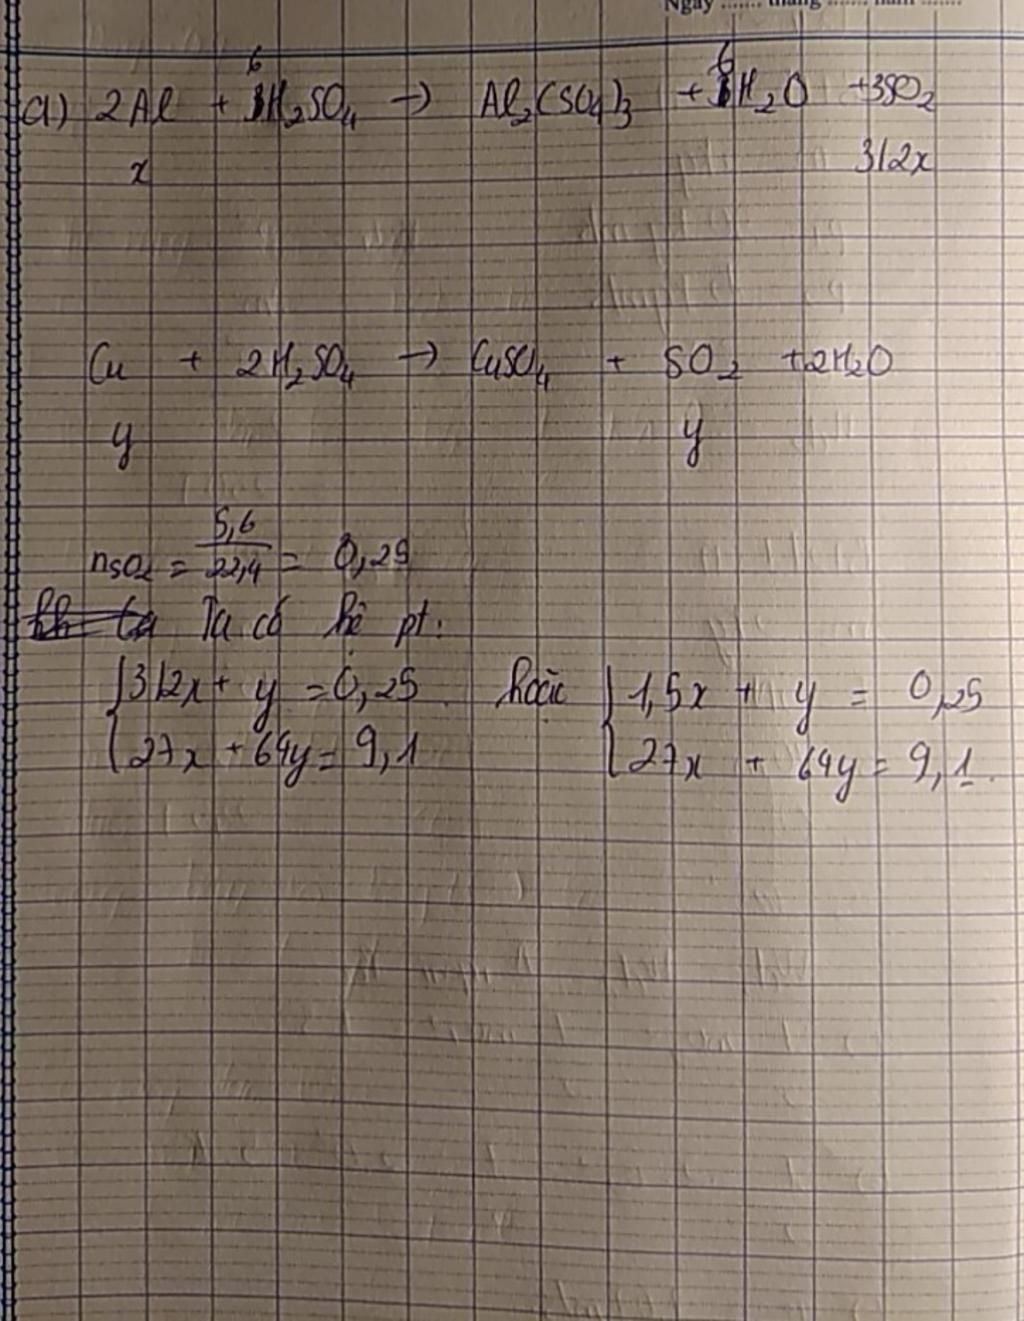 Ngày ....... tháng ....... năm .......
a) 2Al + 6H₂SO₄ → Al₂(SO₄)₃ + 6H₂O + 3SO₂
x 3/2x
Cu + 2H₂SO₄ → CuSO₄ + SO₂ + 2H₂O
y y
nSO₂ = 5,6/22,4 = 0,25
Ta có hệ pt:
{3/2x + y = 0,25 hoặc {1,5x + y = 0,25
{27x + 64y = 9,1 {27x + 64y = 9,1.